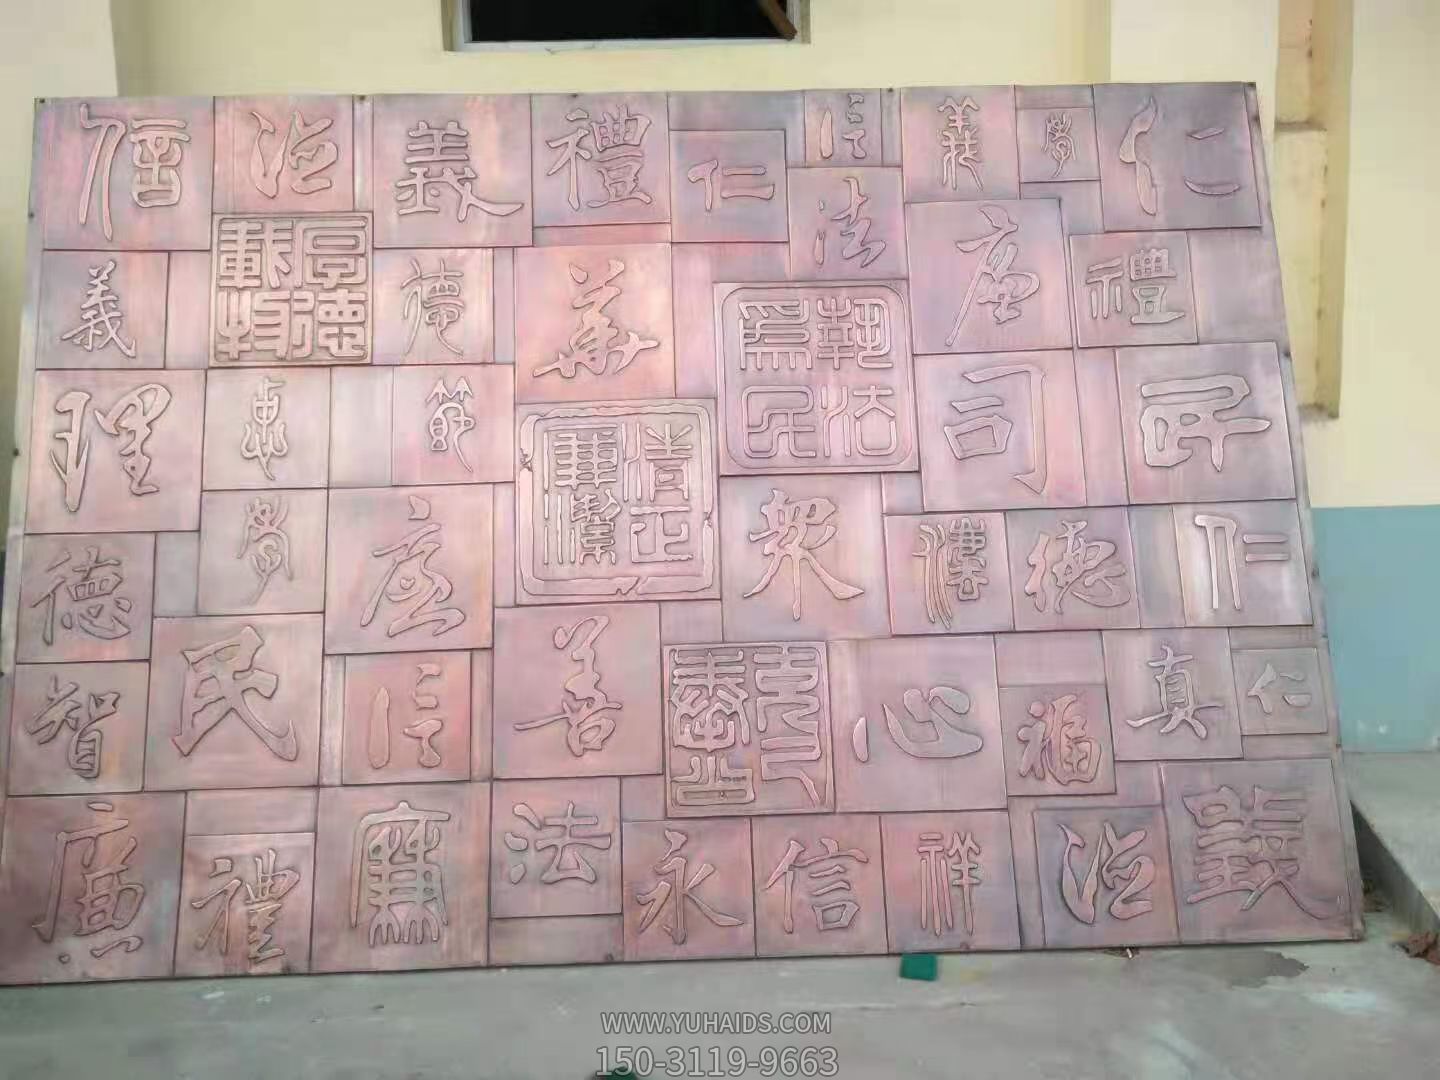 信
德
義
禮
仁
信
義
孝
仁
義
厚德
載物
德
華
法
執法
為民
廉
禮
理
忠
節
清正
廉潔
司
德
孝
廉
眾
德
仁
智
民
信
善
克己
奉公
心
福
真
仁
廉
禮
廉
法
永
信
祥
德
義
WWW.YUHAIDS.COM
150-3119-9663